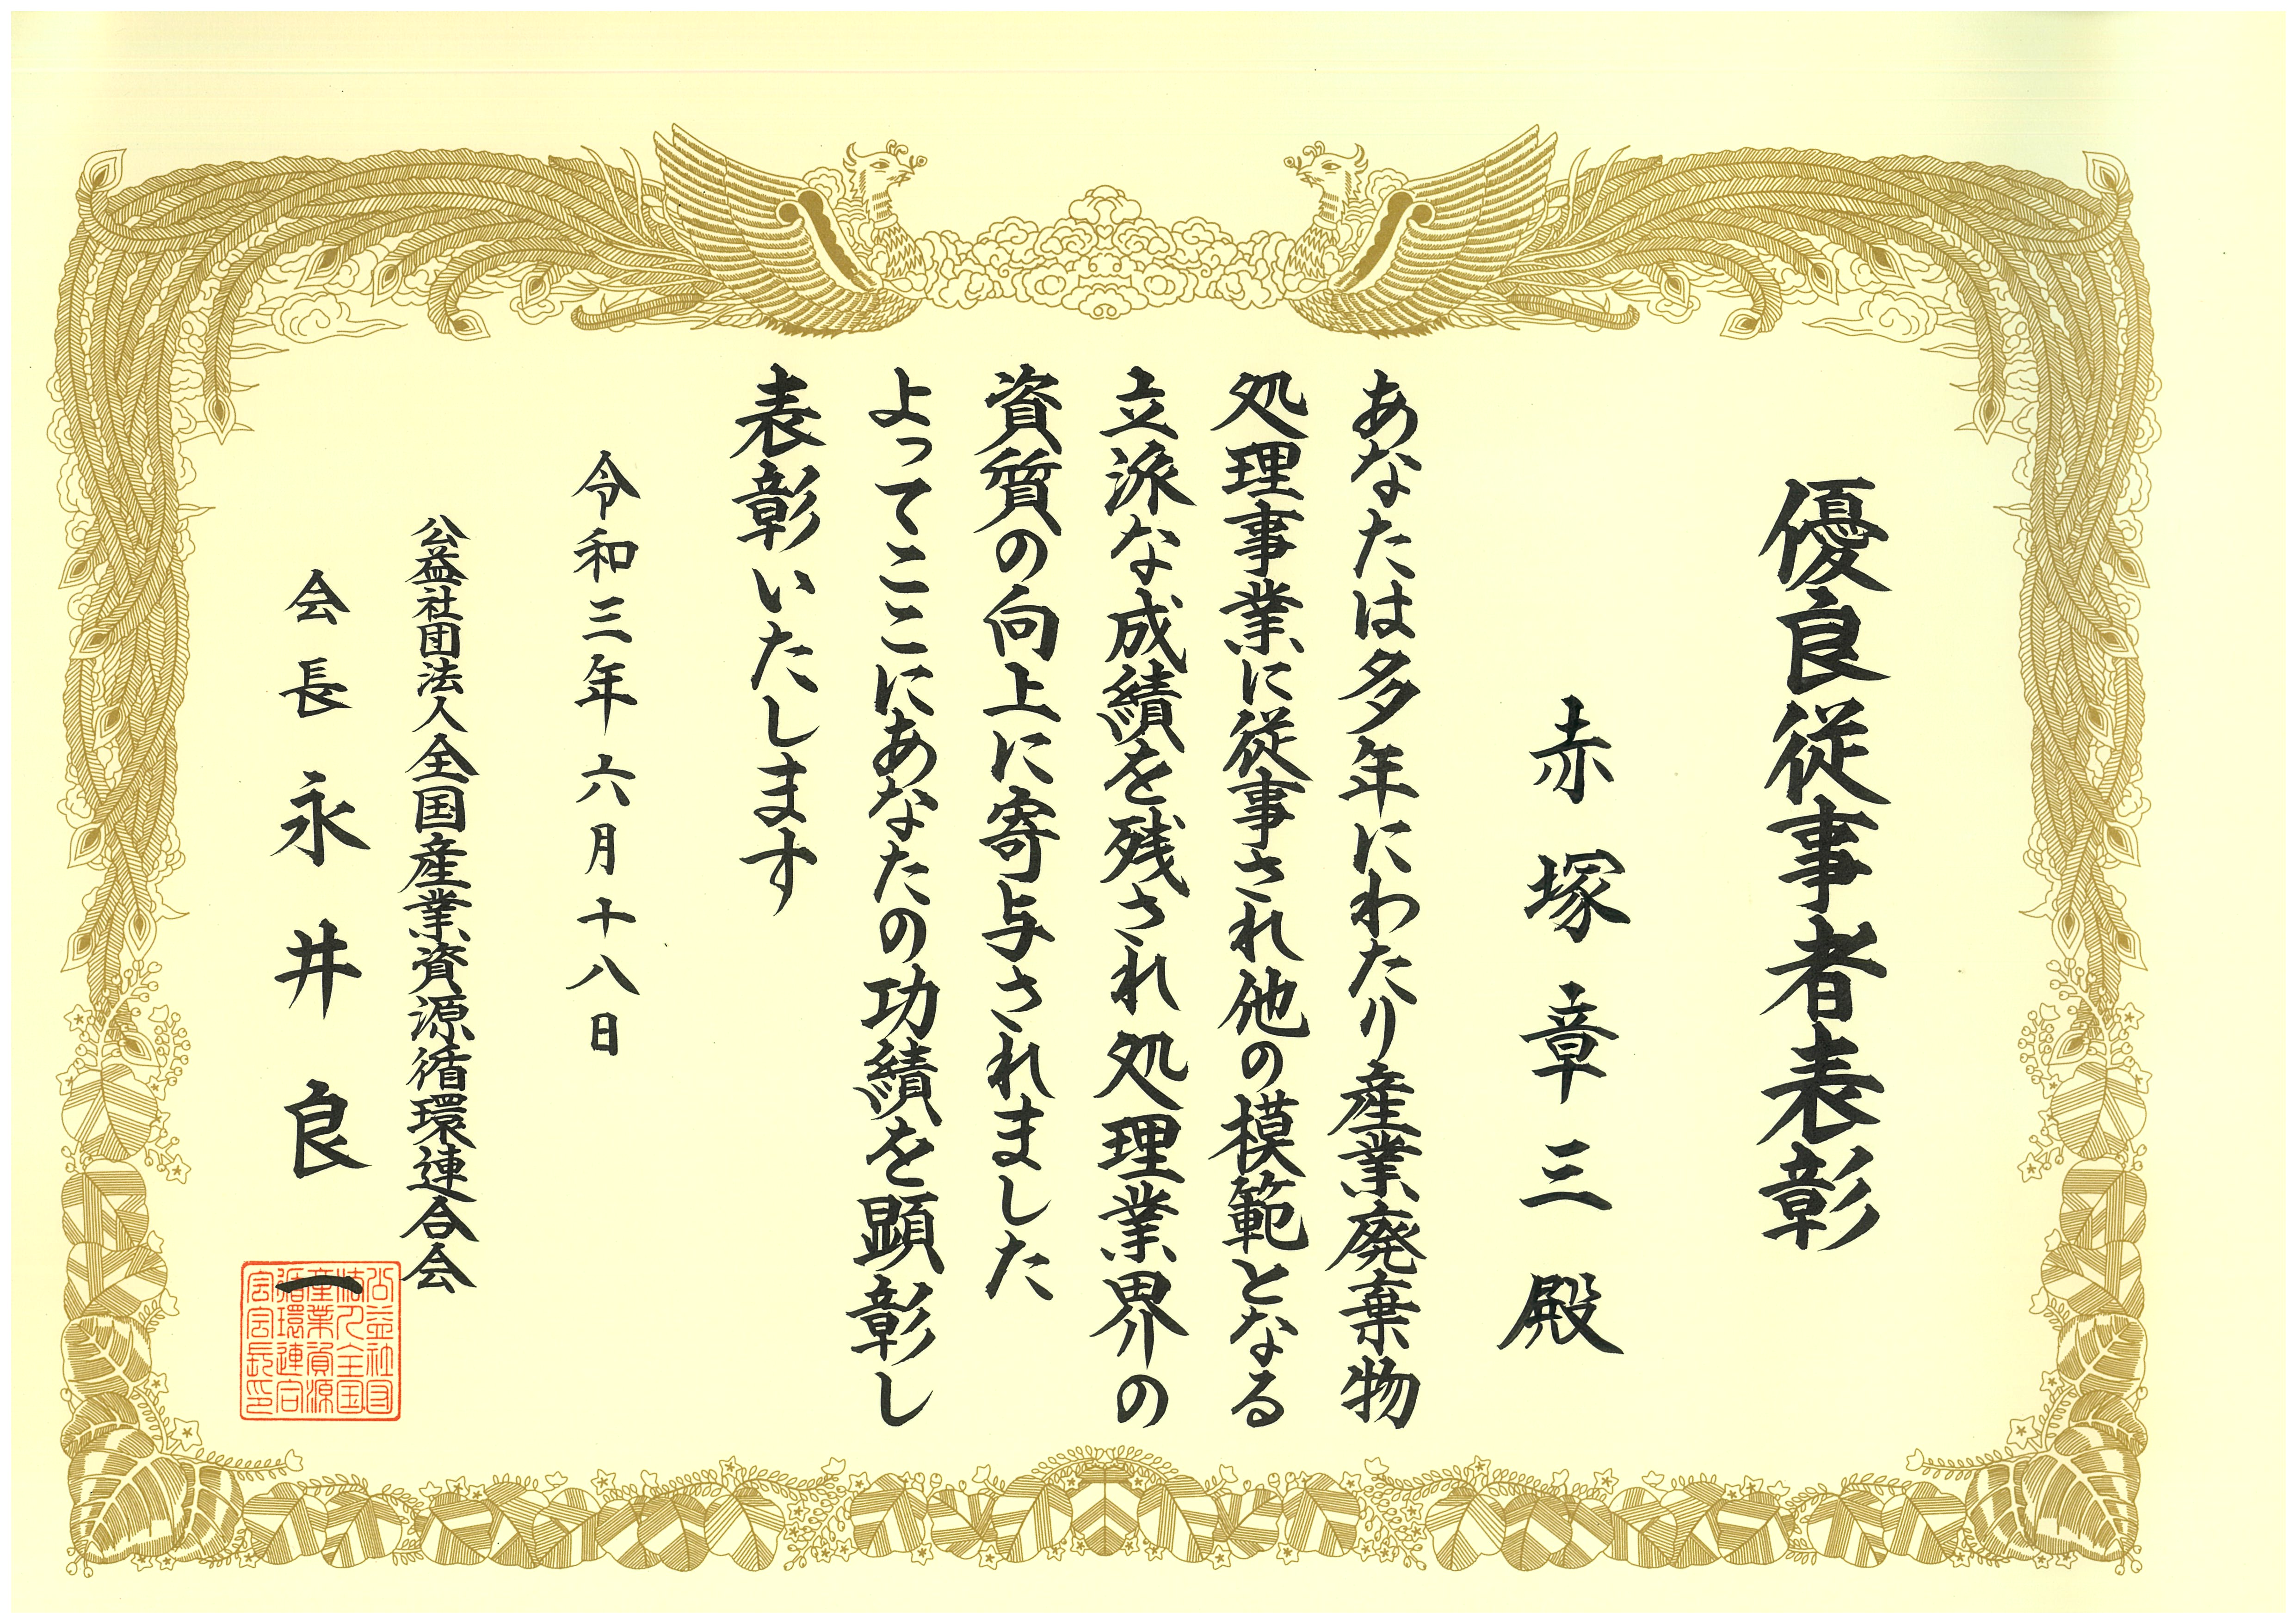 優良従事者表彰
赤塚章三殿
あなたは多年にわたり産業廃棄物
処理事業に従事され他の模範となる
立派な成績を残され処理業界の
資質の向上に寄与されました
よってここにあなたの功績を顕彰し
表彰いたします
令和三年六月十八日
公益社団法人全国産業資源循環連合会
会長永井良一
公益社団
法人全国
産業資源
循環連合
会会長印